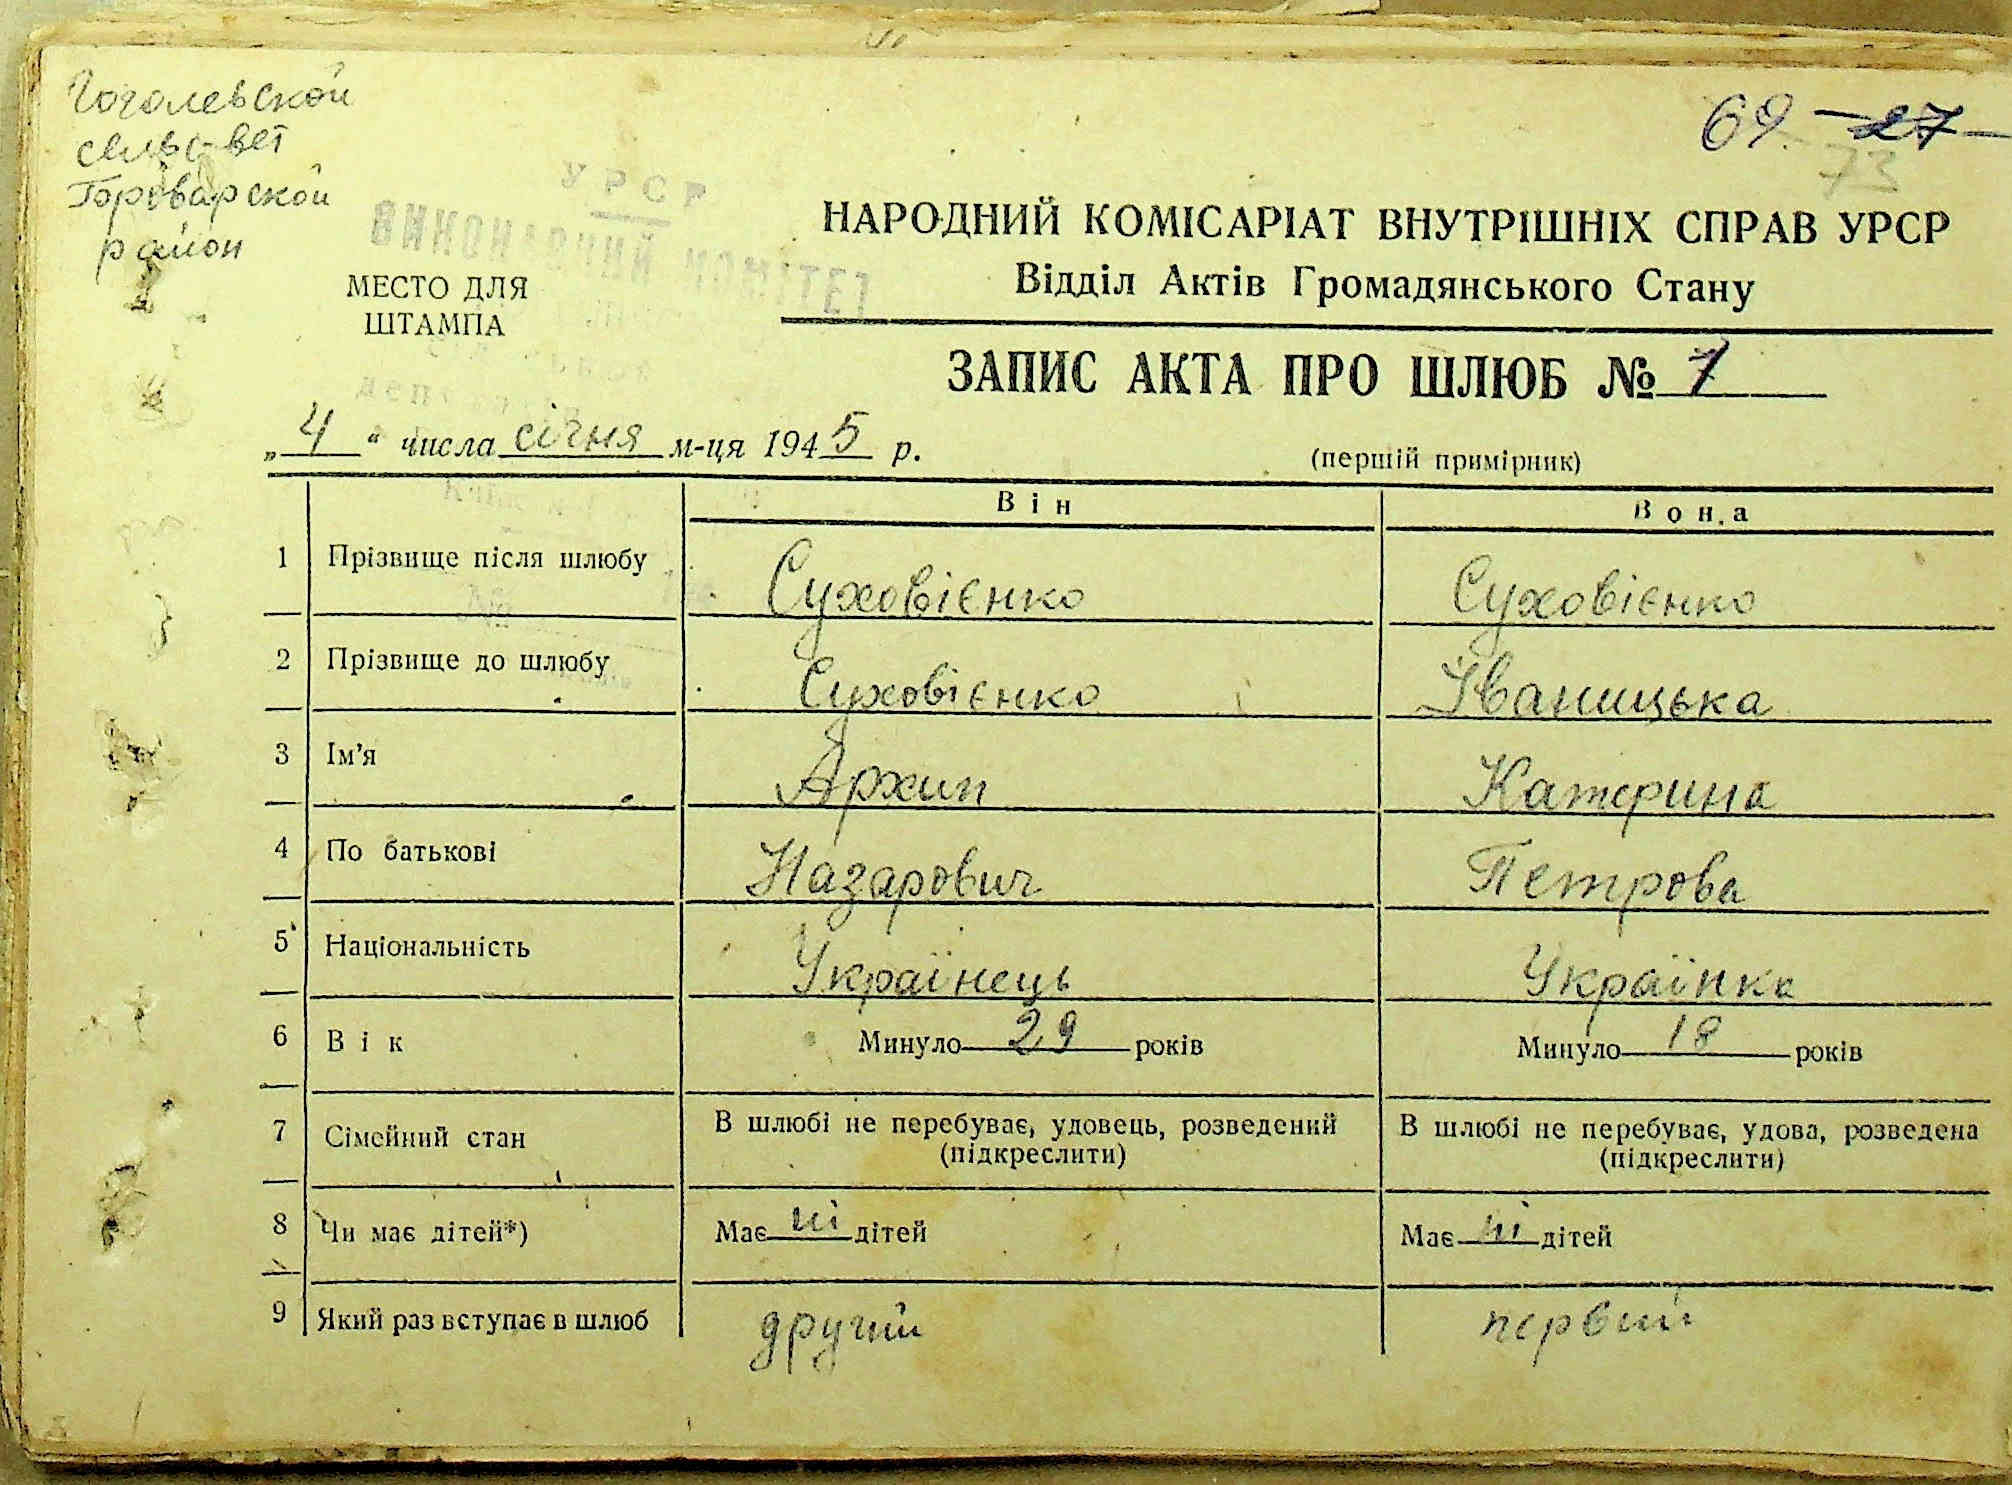 Гоголевской
сельсвет
Боварской
район
69 -27-
73
УРСР
ВИКОНАВЧИЙ КОМІТЕТ
НАРОДНИЙ КОМІСАРІАТ ВНУТРІШНІХ СПРАВ УРСР
Відділ Актів Громадянського Стану
МЕСТО ДЛЯ
ШТАМПА
ЗАПИС АКТА ПРО ШЛЮБ № 1
„4“ числа січня м-ця 1945 р.
(перший примірник)
Він Вона
1 Прізвище після шлюбу Суховієнко Суховієнко
2 Прізвище до шлюбу Суховієнко Іваницька
3 Ім'я Архип Катерина
4 По батькові Назарович Петрова
5 Національність Українець Українка
6 Вік Минуло 29 років Минуло 18 років
7 Сімейний стан В шлюбі не перебуває, удовець, розведений (підкреслити) В шлюбі не перебуває, удова, розведена (підкреслити)
8 Чи має дітей*) Має ні дітей Має ні дітей
9 Який раз вступає в шлюб другий первий